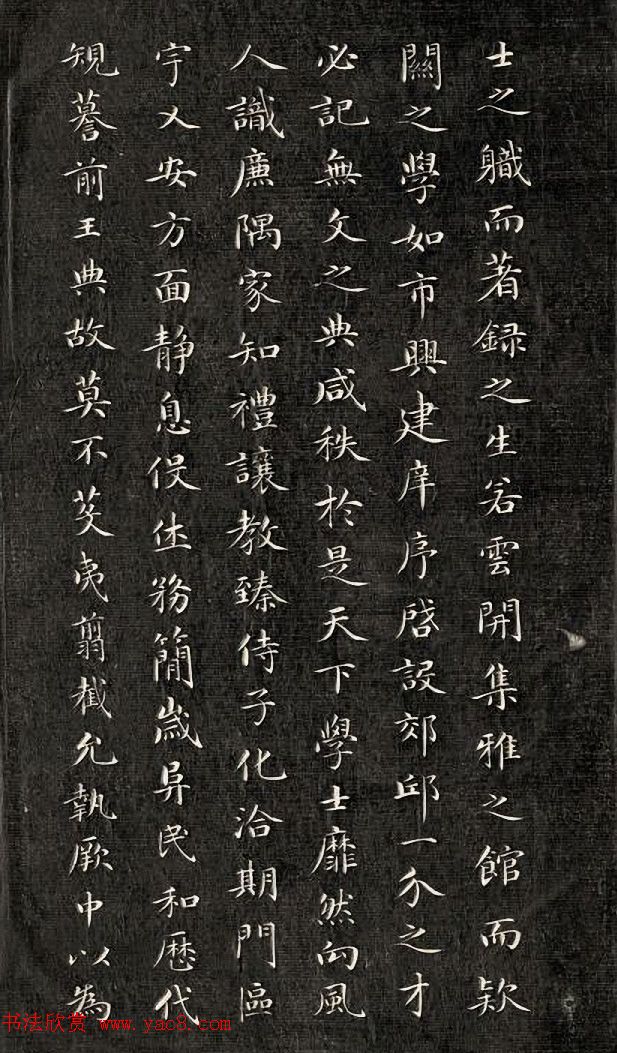 士之職而著録之生若雲開集雅之館而款
關之學如市興建庠序啓設郊邱一介之才
必記無文之典咸秩於是天下學士靡然向風
人識廉隅家知禮讓教臻侍子化洽期門區
宇乂安方面静息役休務簡歲昇民和歷代
規謩前王典故莫不芟夷翦截允執厥中以為
书法欣赏 www.yac8.com